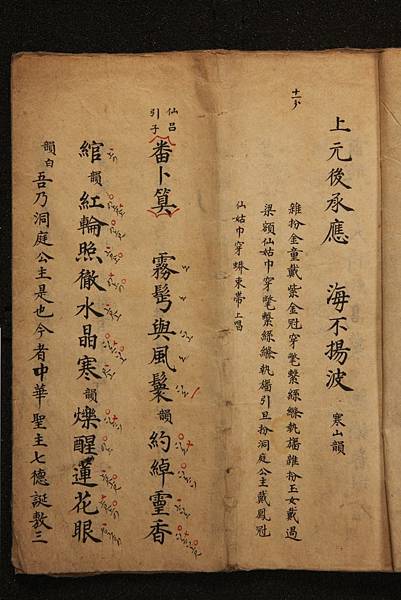 十一
上元後承應　海不揚波　寒山韻
雜扮金童戴紫金冠穿氅繫絲縧執旛雜扮玉女戴過
梁額仙姑巾穿氅繫絲縧執旛引旦扮洞庭公主戴鳳冠
仙姑巾穿蟒束帶上唱
仙呂引子
番卜算　霧鬢與風鬟韻約綽靈香
綰韻紅輪照徹水晶寒韻爍醒蓮花眼
韻白吾乃洞庭公主是也今者中華聖主七德誕敷三